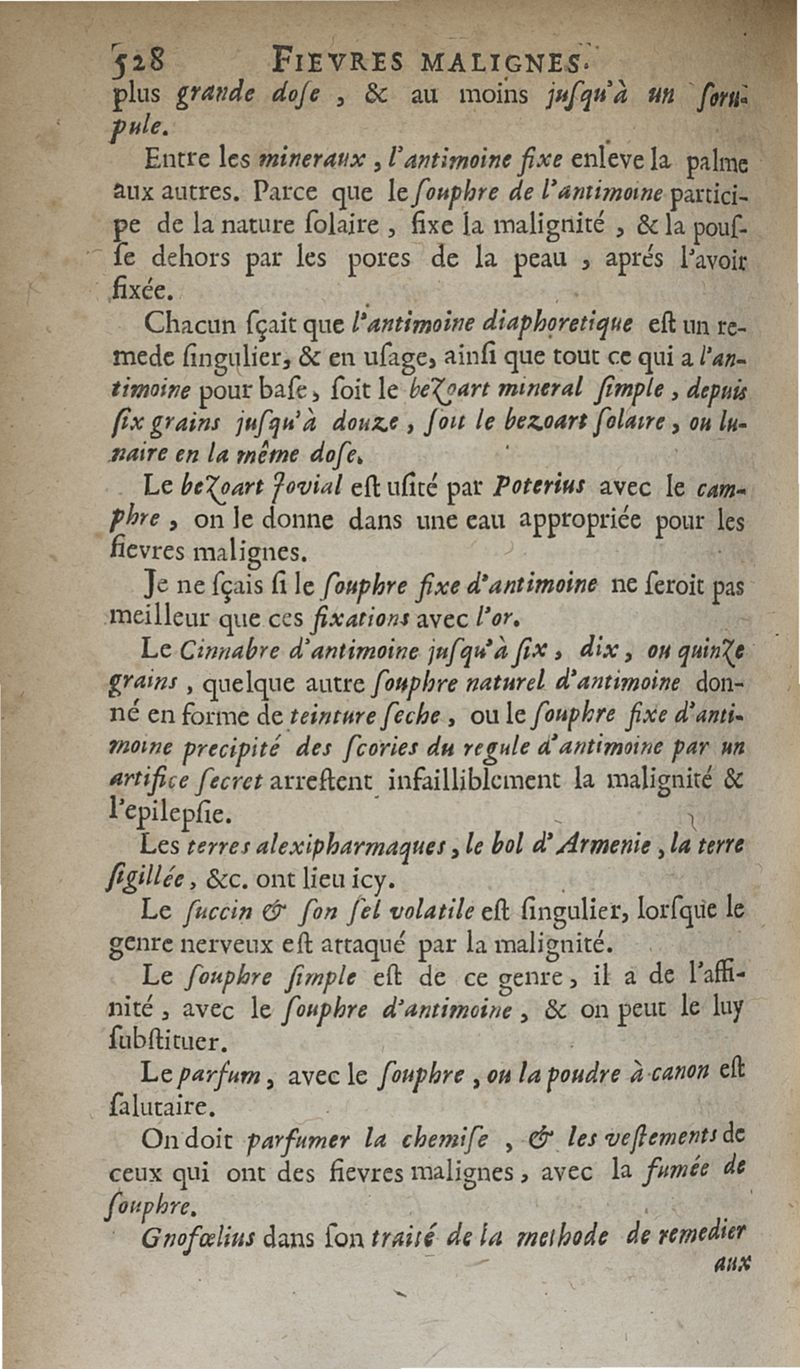 528 FIEVRES MALIGNES.
plus grande doſe , & au moins juſqu'à un ſcru-
pule.
Entre les mineraux , l'antimoine fixe enleve la palme
aux autres. Parce que le ſouphre de l'antimoine partici-
pe de la nature ſolaire , fixe la malignité , & la pouſ-
ſe dehors par les pores de la peau , aprés l'avoir
fixée.
Chacun ſçait que l'antimoine diaphoretique eſt un re-
mede ſingulier, & en uſage, ainſi que tout ce qui a l'an-
timoine pour baſe, ſoit le beZoart mineral ſimple , depuis
ſix grains juſqu'à douze , ſoit le bezoart ſolaire , ou lu-
naire en la même doſe.
Le beZoart Jovial eſt uſité par Poterius avec le cam-
phre , on le donne dans une eau appropriée pour les
fievres malignes.
Je ne ſçais ſi le ſouphre fixe d'antimoine ne ſeroit pas
meilleur que ces fixations avec l'or.
Le Cinnabre d'antimoine juſqu'à ſix , dix , ou quinZe
grains , quelque autre ſouphre naturel d'antimoine don-
né en forme de teinture ſeche , ou le ſouphre fixe d'anti-
moine precipité des ſcories du regule d'antimoine par un
artifice ſecret arreſtent infailliblement la malignité &
l'epilepſie.
Les terres alexipharmaques , le bol d'Armenie , la terre
ſigillée , &c. ont lieu icy.
Le ſuccin & ſon ſel volatile eſt ſingulier, lorſque le
genre nerveux eſt attaqué par la malignité.
Le ſouphre ſimple eſt de ce genre , il a de l'affi-
nité , avec le ſouphre d'antimoine , & on peut le luy
ſubſtituer.
Le parfum , avec le ſouphre , ou la poudre à canon eſt
ſalutaire.
On doit parfumer la chemiſe , & les veſtements de
ceux qui ont des fievres malignes , avec la fumée de
ſouphre.
Gnofœlius dans ſon traité de la methode de remedier
aux